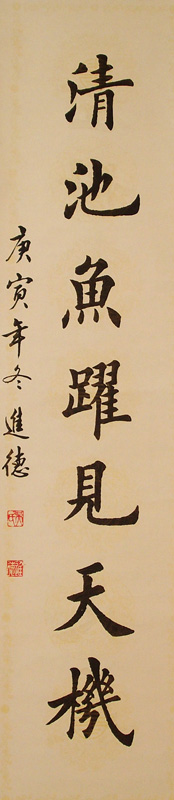 清池魚躍見天機
庚寅年冬進德